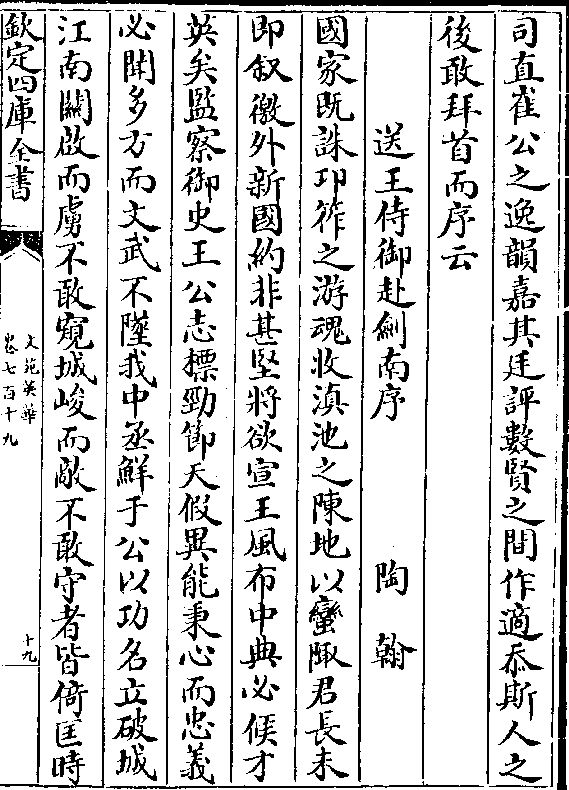 司直崔公之逸韻嘉其廷評數賢之間作適忝斯人之
後敢拜首而序云
送王侍御赴劍南序　陶翰
國家既誅邛筰之游魂收滇池之陳地以蠻陬君長未
即叙徼外新國約非甚堅將欲宣王風布中典必候才
英矣監察御史王公志標勁節天假異能秉心而忠義
必聞多方而文武不墜我中丞鮮于公以功名立破城
江南關啟而虜不敢窺城峻而敵不敢守者皆倚匡時
欽定四庫全書
文苑英華
卷七百十九
十九